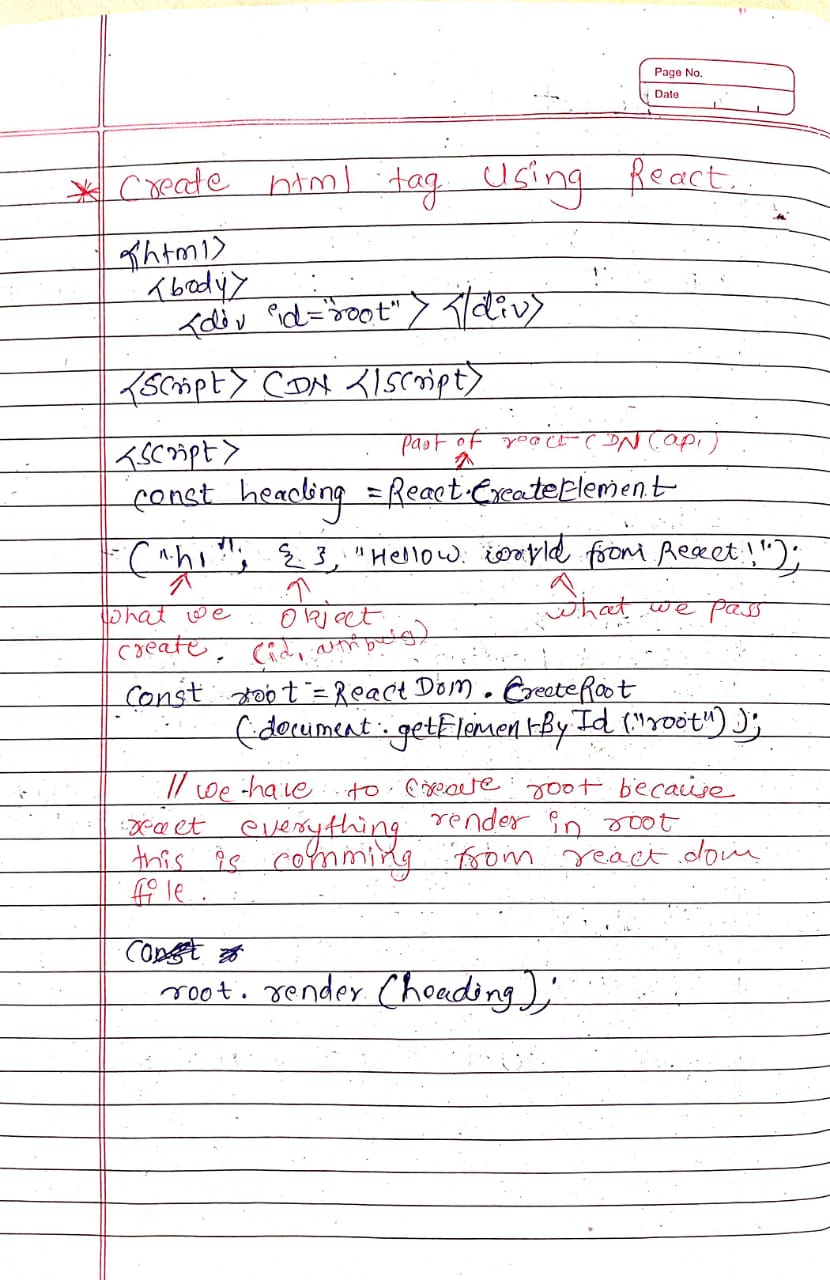 Page No.
Date
* Create html tag Using React.
<html>
<body>
<div id="root"> </div>
<Script> CDN </Script>
<Script>
Part of react CDN (api)
const heading = React.CreateElement
("h1", { }, "Hellow world from React!");
what we Object what we pass
create. (id,
Const root = ReactDom.CreateRoot
(document.getElementById("root"));
// we have to create root because
react everything render in root
this is comming from react dom
file.
Const
root.render(heading);